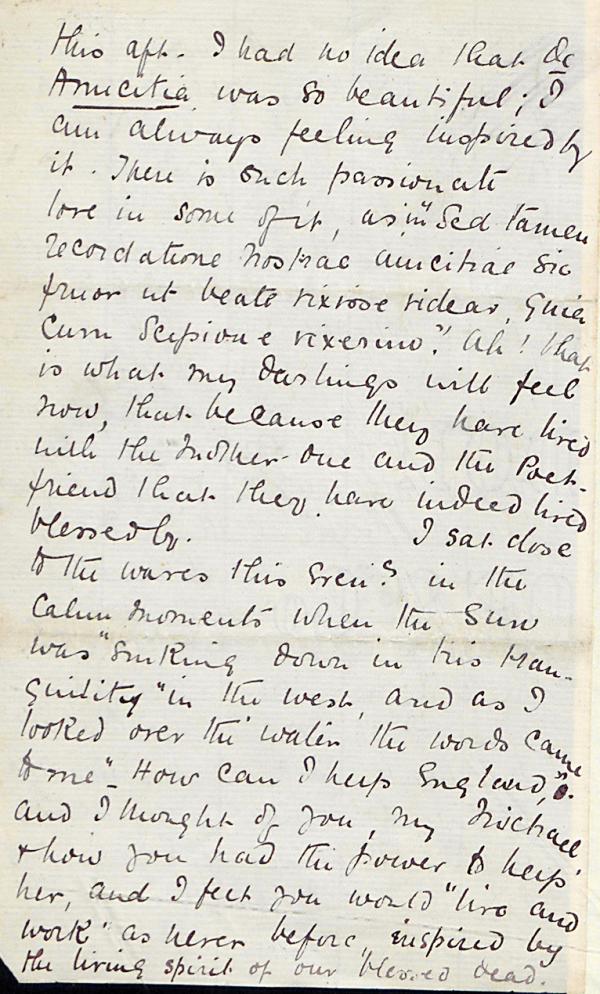 this aft. I had no idea that De
Amicitia was so beautiful; I
am always feeling inspired by
it. There is such passionate
love in some of it, as in "Sed tamen
recordatione nostrae amicitiae sic
fruor ut beate vixisse videar, quia
cum Scipione vixerim." Ah! that
is what my darlings will feel
now, that because they have lived
with the Mother-one and the Poet-
friend that they have indeed lived
blessedly. I sat close
to the waves this Even.g in the
calm moments when the Sun
was "sinking down in his tran-
quility" in the west, and as I
looked over the water the words came
to me "How can I help England,"
and I thought of you, my Michael
& how you had the power to help
her, and I felt you would "live and
work" as never before, inspired by
the living spirit of our blessed dead.